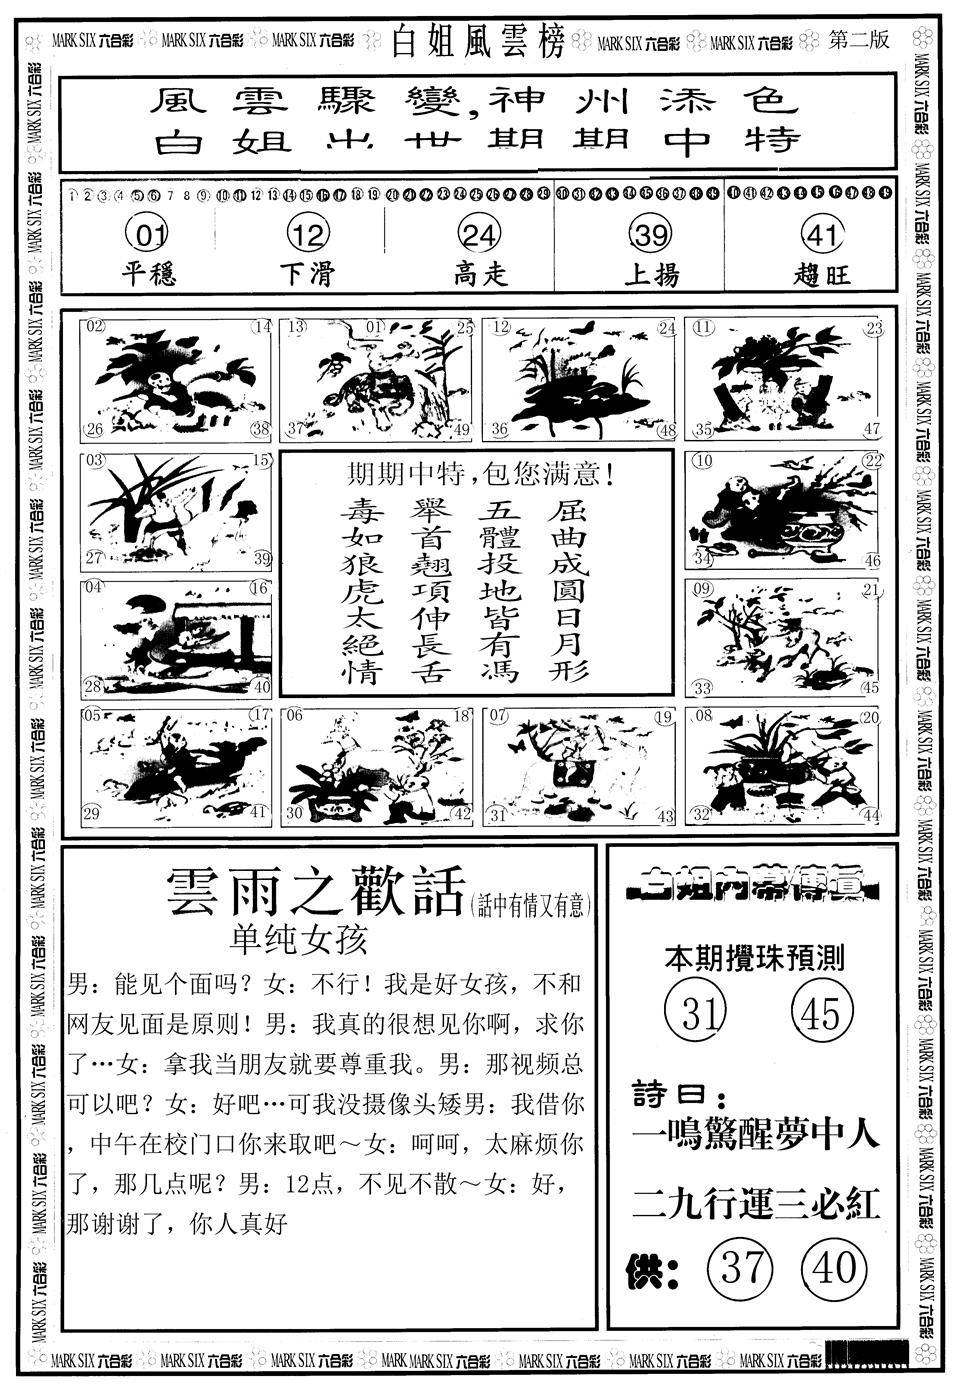 MARK SIX 六合彩 MARK SIX 六合彩 MARK SIX 六合彩 白姐風雲榜 MARK SIX 六合彩 MARK SIX 六合彩 第二版
風雲驟變,神州添色
白姐出世期期中特
1 2 3 4 5 6 7 8 9 10 11 12 13 14 15 16 17 18 19 20 21 22 23 24 25 26 27 28 29 30 31 32 33 34 35 36 37 38 39 40 41 42 43 44 45 46 47 48 49
01 12 24 39 41
平穩 下滑 高走 上揚 趨旺
02 14 13 01 25 12 24 11 23
26 38 37 49 36 48 35 47
03 15
27 39
04 16
28 40
期期中特,包您满意!
屈曲成圓日月形
五體投地皆有馮
舉首翹項伸長舌
毒如狼虎太絕情
10 22
34 46
09 21
33 45
05 17 06 18 07 19 08 20
29 41 30 42 31 43 32 44
雲雨之歡話(話中有情又有意)
单纯女孩
男：能见个面吗？女：不行！我是好女孩，不和
网友见面是原则！男：我真的很想见你啊，求你
了…女：拿我当朋友就要尊重我。男：那视频总
可以吧？女：好吧…可我没摄像头矮男：我借你
，中午在校门口你来取吧～女：呵呵，太麻烦你
了，那几点呢？男：12点，不见不散～女：好，
那谢谢了，你人真好
白姐内幕傳真
本期攪珠預測
31 45
詩曰：
一鳴驚醒夢中人
二九行運三必紅
供： 37 40
MARK SIX 六合彩 MARK SIX 六合彩 MARK SIX 六合彩 MARK MARK SIX 六合彩 MARK SIX 六合彩 MARK SIX 六合彩 MARK SIX 六合彩